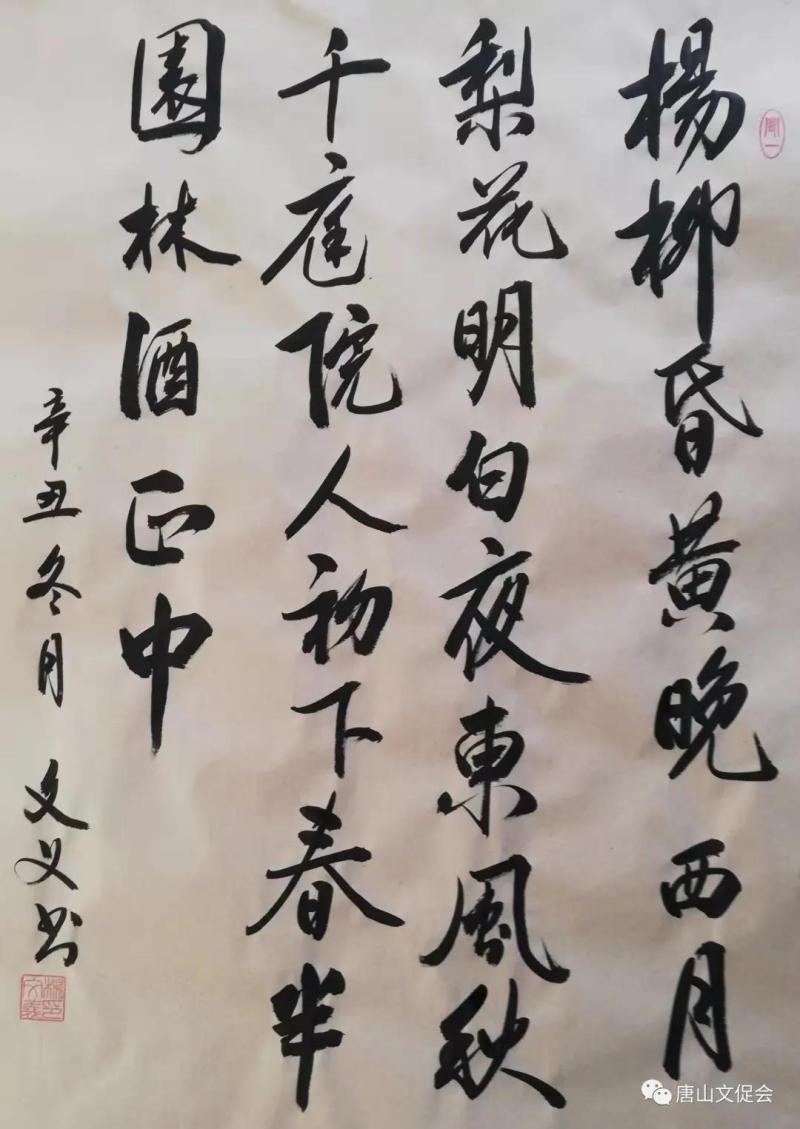 楊柳昏黄晚西月
梨花明白夜東風秋
千庭院人初下春半
園林酒正中
辛丑冬月 文义书
楊文義印
唐山文促会